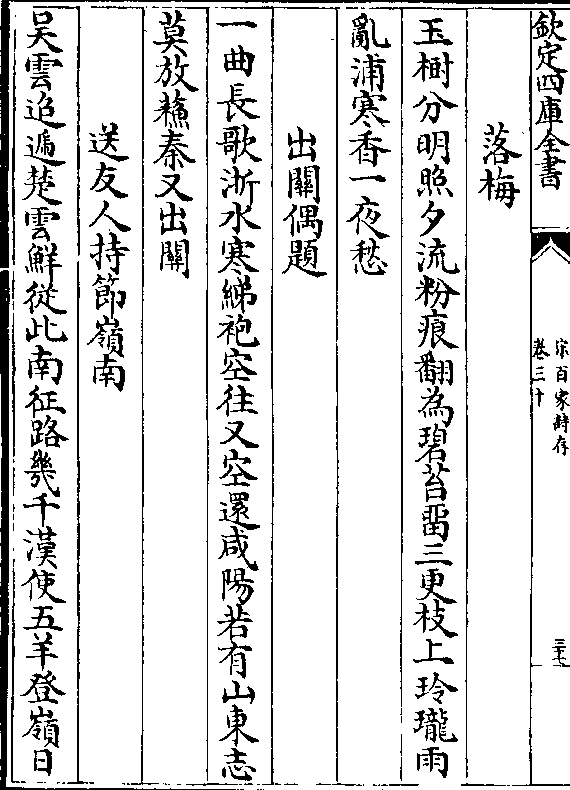 欽定四庫全書
宋百家詩存
卷三十
三七
落梅
玉樹分明照夕流粉痕翻為碧苔留三更枝上玲瓏雨
亂浦寒香一夜愁
出關偶題
一曲長歌浙水寒綈袍空往又空還咸陽若有山東志
莫放蘇秦又出關
送友人持節嶺南
吴雲迢遞楚雲鮮從此南征路幾千漢使五羊登嶺日